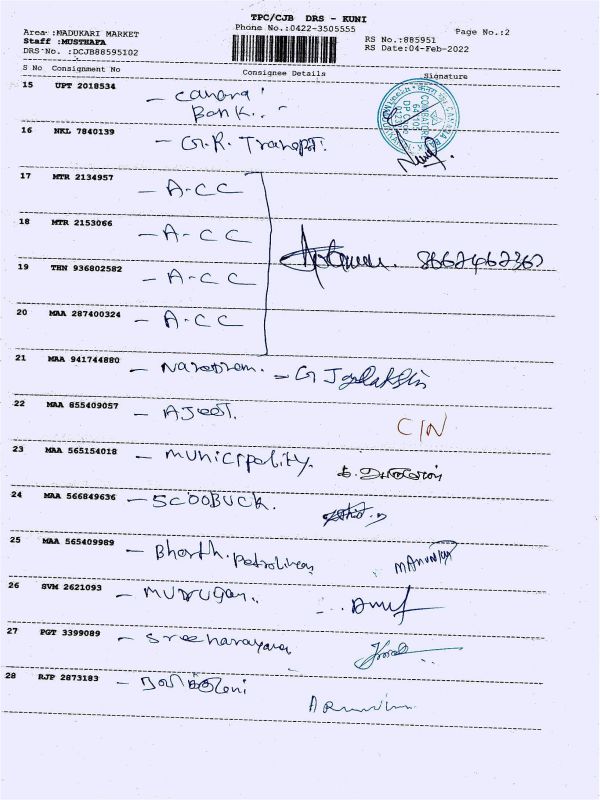 TPC/CJB DRS - KUNI
Phone No.:0422-3505555
Page No.:2
Area :MADUKARI MARKET
Staff :MUSTHAFA
DRS No. :DCJB88595102
RS No.:885951
RS Date:04-Feb-2022
S No Consignment No Consignee Details Signature
15 UPT 2018534 - Canara
Bank.
16 NKL 7840139 - G.R. Transport.
17 MTR 2134957 - A-CC
18 MTR 2153066 - A-CC
19 THN 936802582 - A-CC
20 MAA 287400324 - A-CC
21 MAA 941744880
22 MAA 855409057 - AJeet. C/N
23 MAA 565154018 - municipality.
24 MAA 566849636 - SCOOBUCK.
25 MAA 565409989 - Bharth. petroliyam
26 SVM 2621093 - murugan.
27 PGT 3399089 - Sreenarayana
28 RJP 2873183